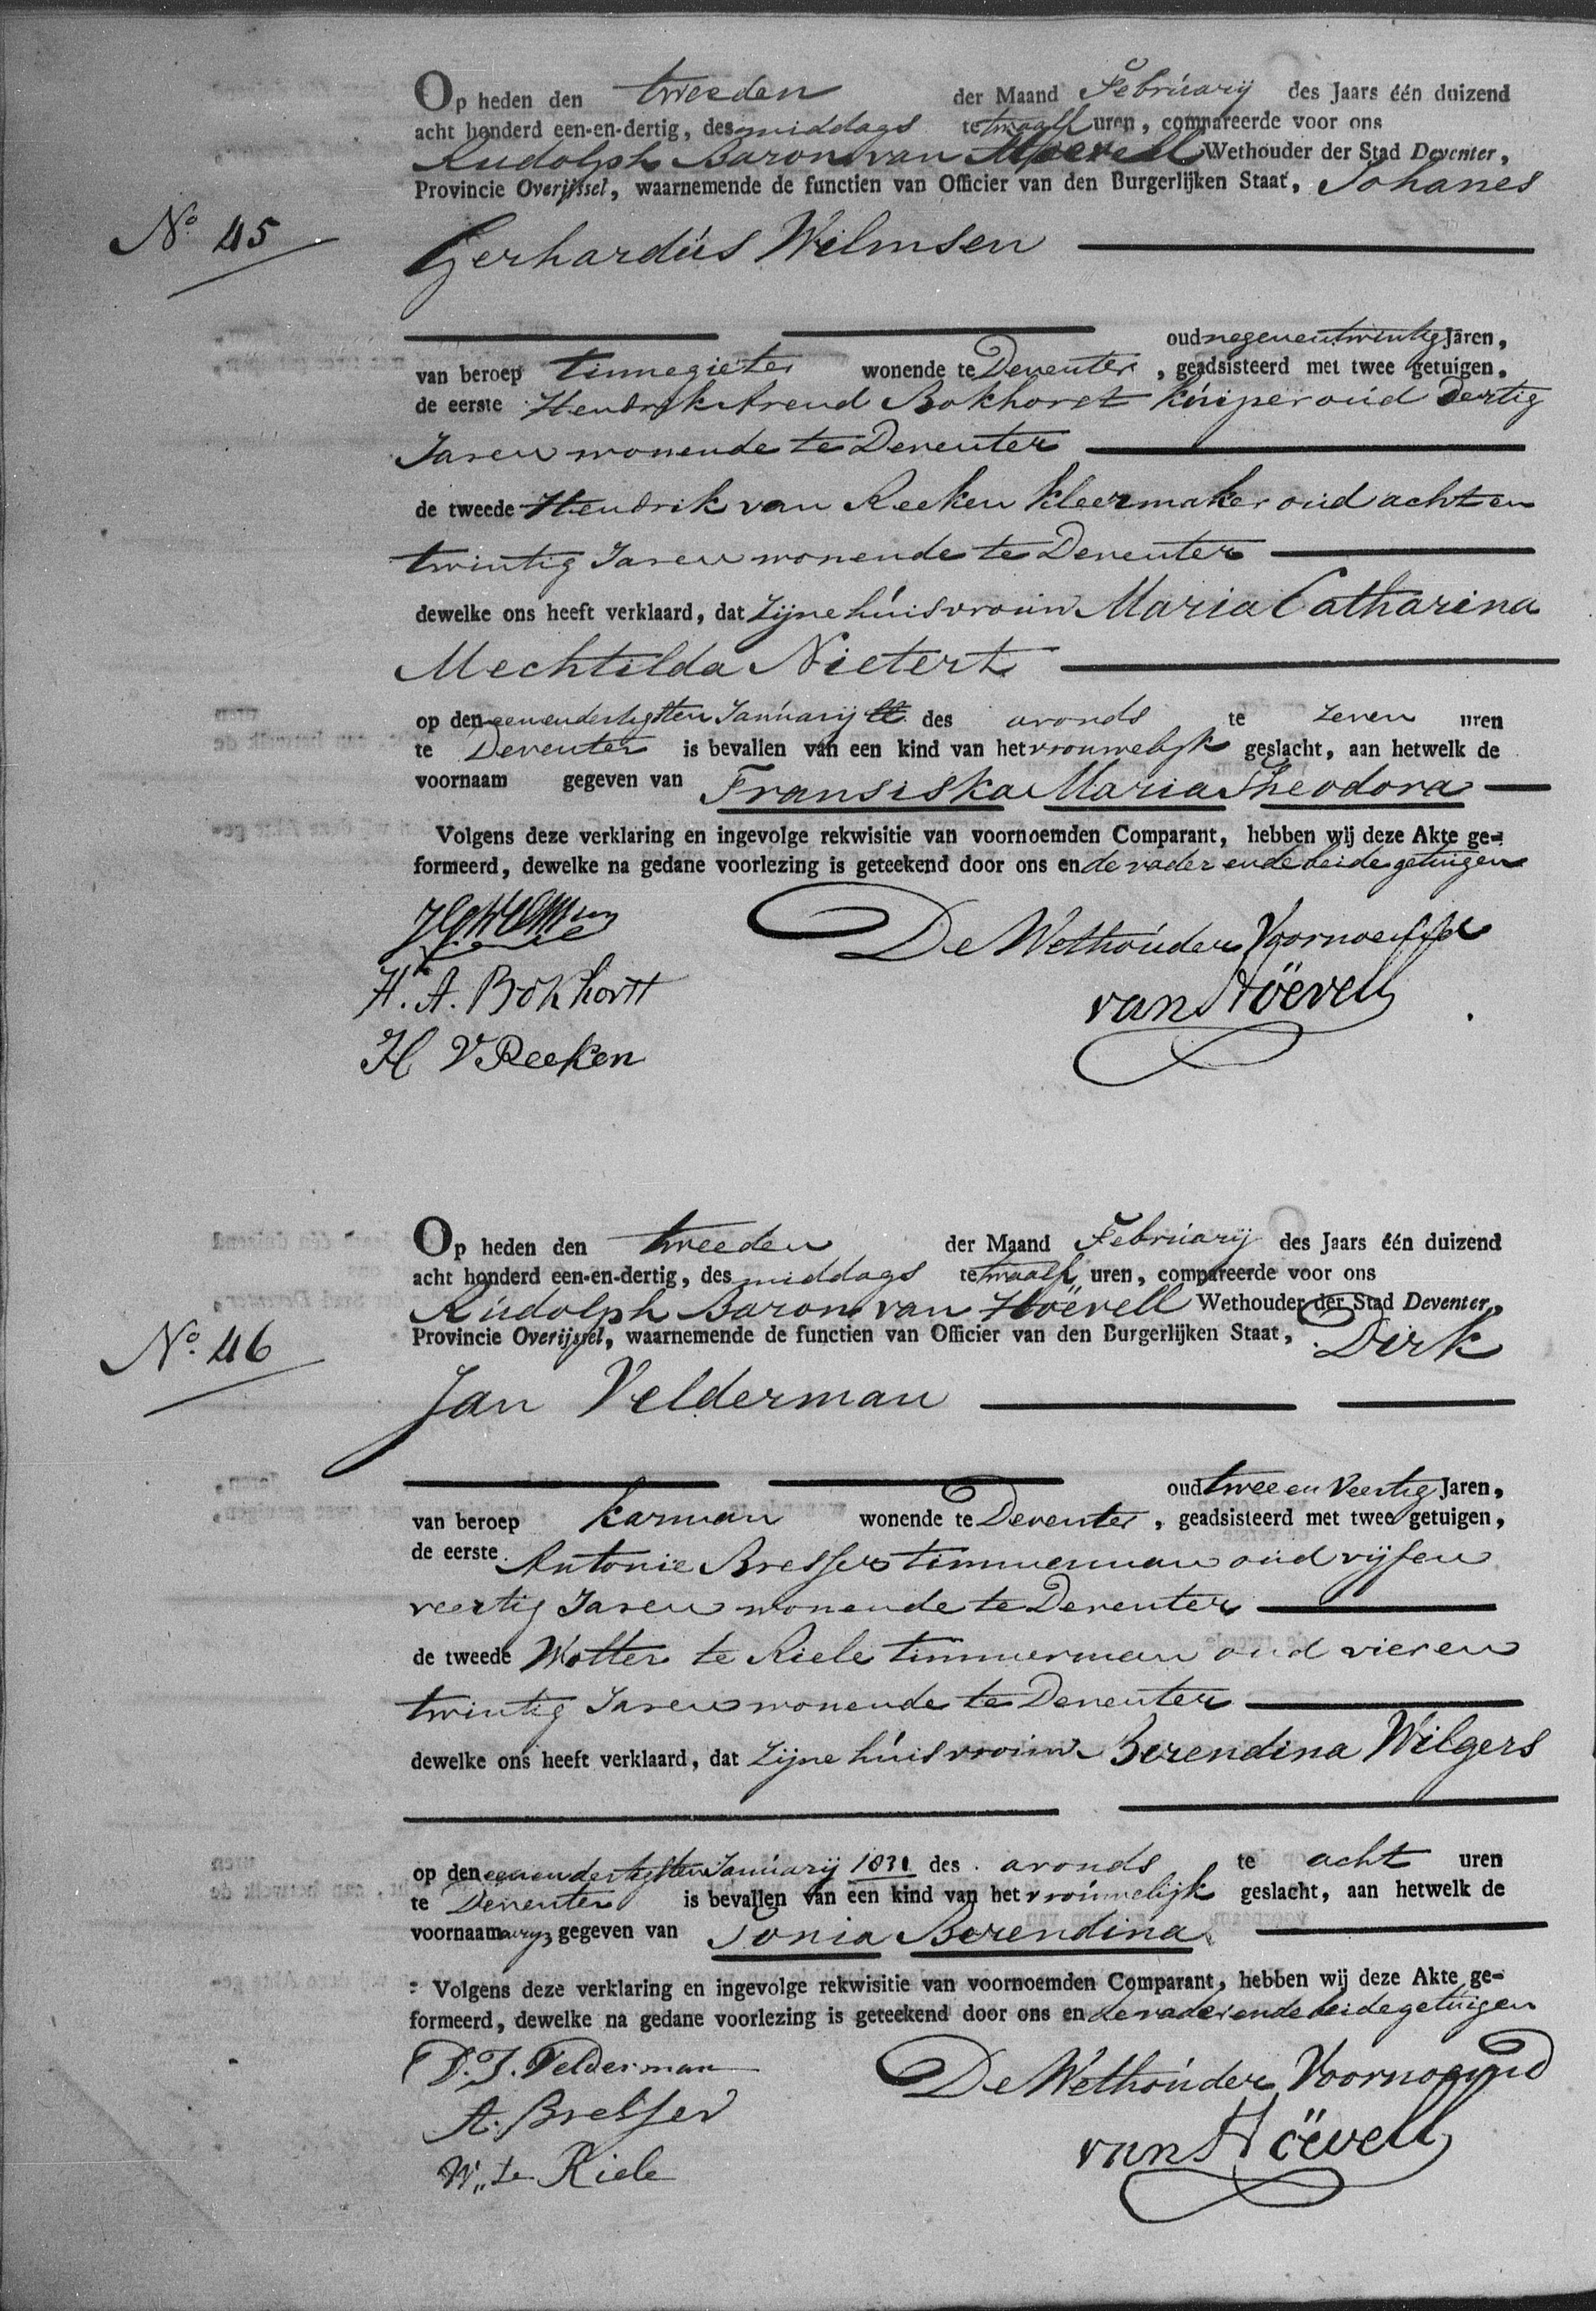 Op heden den tweeden der Maand Februarij des Jaars één duizend
acht honderd een-en-dertig, des middags te twaalf uren, compareerde voor ons
Rudolph Baron van Hoëvell Wethouder der Stad Deventer,
Provincie Overijssel, waarnemende de functien van Officier van den Burgerlijken Staat, Johanes
No 45
Gerhardus Wilmsen
oud negenentwintig Jaren,
van beroep tinnegieter wonende te Deventer, geadsisteerd met twee getuigen,
de eerste Hendrik Arend Bokhorst kuiper oud Dertig
Jaren wonende te Deventer
de tweede Hendrik van Reeken kleermaker oud acht en
twintig Jaren wonende te Deventer
dewelke ons heeft verklaard, dat Zijne huisvrouw Maria Catharina
Mechtilda Nietert
op den eenendertigsten Januarij ll. des avonds te zeven uren
te Deventer is bevallen van een kind van het vrouwelijk geslacht, aan hetwelk de
voornaam gegeven van Fransiska Maria Theodora
Volgens deze verklaring en ingevolge rekwisitie van voornoemden Comparant, hebben wij deze Akte ge-
formeerd, dewelke na gedane voorlezing is geteekend door ons en de vader en de beide getuigen
De Wethouder Voornoemd
H. A. Bokhorst
van Höevell
H V Reeken
Op heden den tweeden der Maand Februarij des Jaars één duizend
acht honderd een-en-dertig, des middags te twaalf uren, compareerde voor ons
Rudolph Baron van Hoëvell Wethouder der Stad Deventer,
Provincie Overijssel, waarnemende de functien van Officier van den Burgerlijken Staat, Dirk
No. 46
Jan Velderman
oud twee en Veertig Jaren,
van beroep karman wonende te Deventer, geadsisteerd met twee getuigen,
de eerste Antonie Bresser timmerman oud vijf en
veertig Jaren wonende te Deventer
de tweede Wolter te Riele timmerman oud vier en
twintig Jaren wonende te Deventer
dewelke ons heeft verklaard, dat Zijne huisvrouw Berendina Wilgers
op den eenendertigsten Januarij 1831 des avonds te acht uren
te Deventer is bevallen van een kind van het vrouwelijk geslacht, aan hetwelk de
voornaam gegeven van Tonia Berendina
Volgens deze verklaring en ingevolge rekwisitie van voornoemden Comparant, hebben wij deze Akte ge-
formeerd, dewelke na gedane voorlezing is geteekend door ons en de vader en de beide getuigen
D. J. Velderman
De Wethouder Voornoemd
A. Bresser
van Höevell
W. te Riele